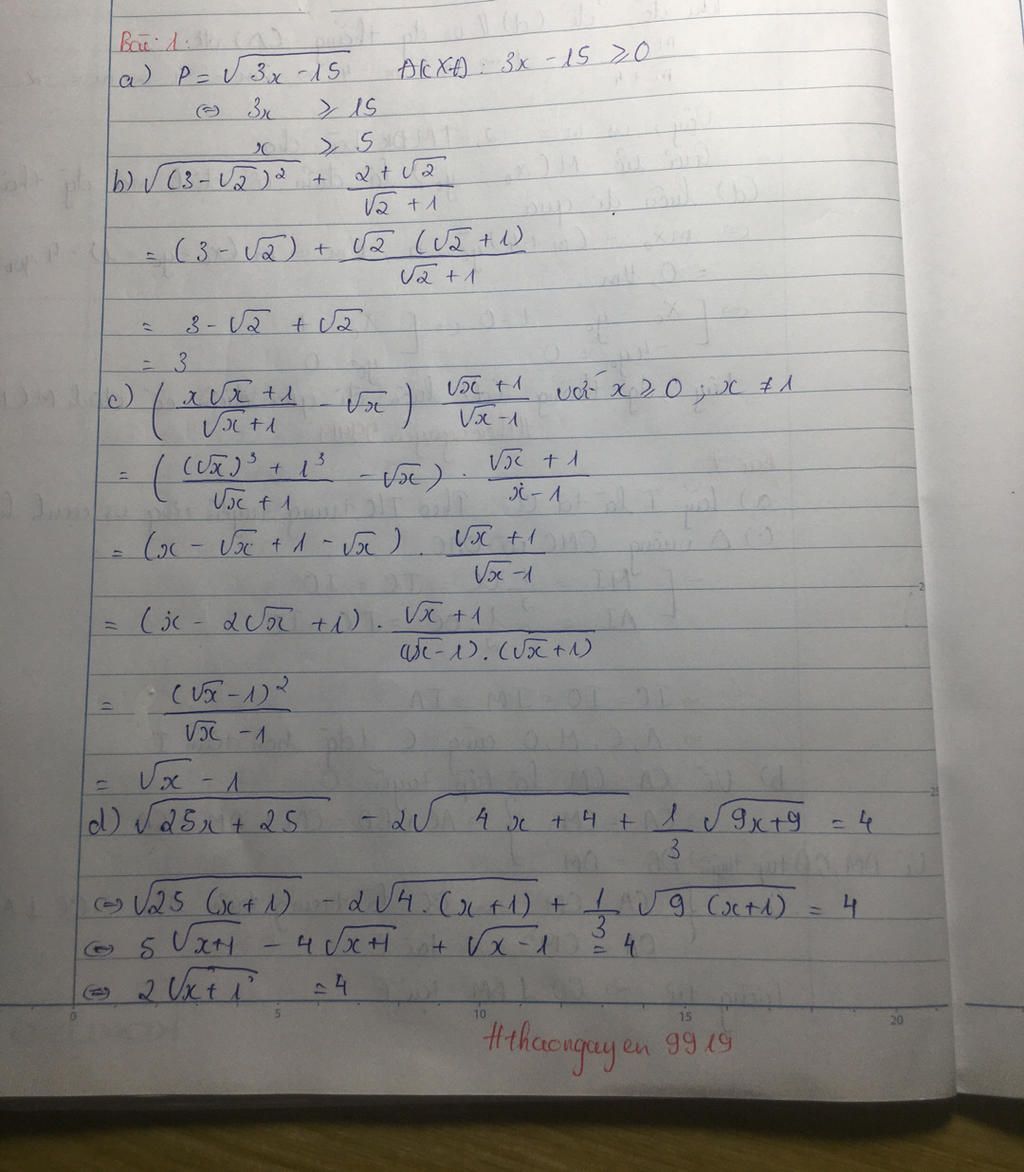 Bài 1:
a) P = √(3x - 15) ĐKXĐ: 3x - 15 ≥ 0
⇔ 3x ≥ 15
x ≥ 5
b) √((3-√2)²) + (2+√2)/(√2+1)
= (3-√2) + (√2 (√2+1))/(√2+1)
= 3-√2 + √2
= 3
c) ((x√x+1)/(√x+1) - √x) (√x+1)/(√x-1) với x ≥ 0; x ≠ 1
= (((√x)³ + 1³)/(√x+1) - √x) . (√x+1)/(x-1)
= (x - √x + 1 - √x) . (√x+1)/(√x-1)
= (x - 2√x + 1) . (√x+1)/((√x-1).(√x+1))
= (√x-1)²/(√x-1)
= √x - 1
d) √(25x+25) - 2√(4x+4) + 1/3 √(9x+9) = 4
⇔ √(25(x+1)) - 2√(4.(x+1)) + 1/3 √(9(x+1)) = 4
⇔ 5√(x+1) - 4√(x+1) + √(x-1) = 4
⇔ 2√(x+1) = 4
0 5 10 15 20
#thaonguyen 9919